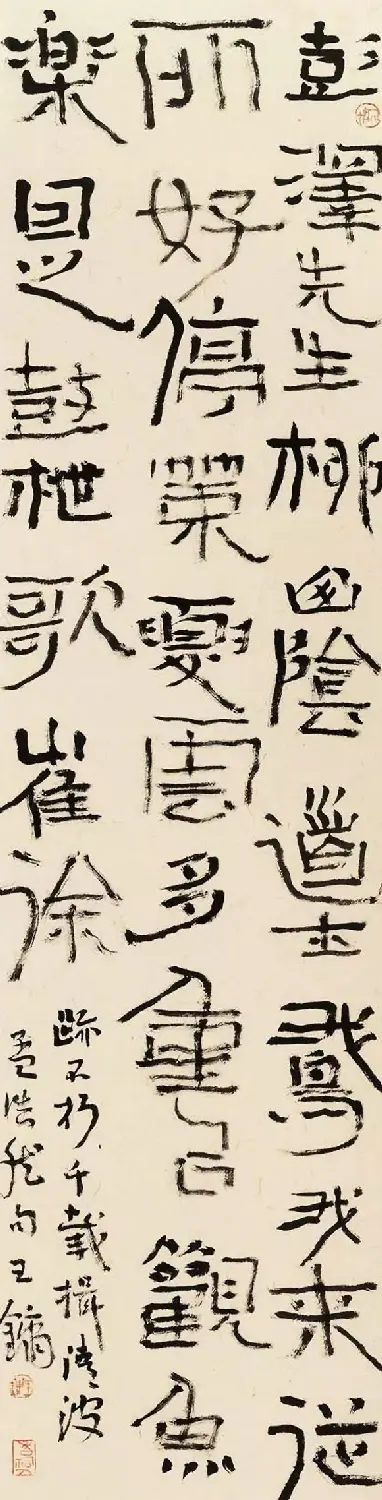 彭澤先生柳山陰道士鵞我来從
所好停策夏雲多重以觀魚
楽因之鼓枻歌崔徐
跡不朽千載揖清波
孟浩然句王鏞